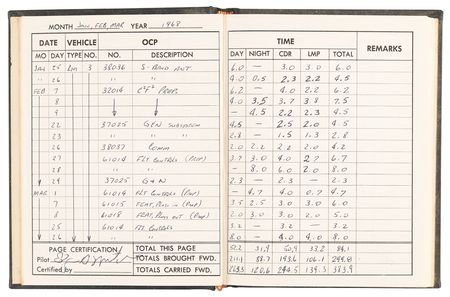 MONTH JAN, FEB, MAR YEAR 1968
DATE VEHICLE OCP
MO DAY TYPE NO. NO. DESCRIPTION
JAN 25 3 38036 S-BAND ANT
" 26 " "
FEB 7 32014 PROP.
8
9
22 37025 G&N SUBSYSTEM
23 " "
26 38037 COMM
27 61014 FLT CONTROLS
28 " "
29 37025 G&N
MAR 1 61014 FLT CONTROLS
7 61015
8 61018
25 61014 FLT CONTROLS
26 " "
PAGE CERTIFICATION
Pilot
Certified by
TOTAL THIS PAGE
TOTALS BROUGHT FWD.
TOTALS CARRIED FWD.
TIME REMARKS
DAY NIGHT CDR LMP TOTAL
6.0 — 3.0 3.0 6.0
4.0 0.5 2.3 2.2 4.5
6.2 — 4.0 2.2 6.2
4.0 3.5 3.7 3.8 7.5
— 4.5 2.2 2.3 4.5
4.5 — 2.5 2.0 4.5
2.8 — 1.5 1.3 2.8
2.0 2.2 2.2 2.0 4.2
3.7 3.0 4.0 2.7 6.7
— 8.0 6.0 2.0 8.0
2.3 — 2.3 — 2.3
— 4.7 4.0 0.7 4.7
3.5 2.5 3.0 3.0 6.0
2.0 3.0 3.0 2.0 5.0
3.2 — 3.2 — 3.2
8.0 — 4.0 4.0 8.0
52.2 31.9 50.9 33.2 84.1
211.1 88.7 193.6 106.1 299.8
263.3 120.6 244.5 139.3 383.9